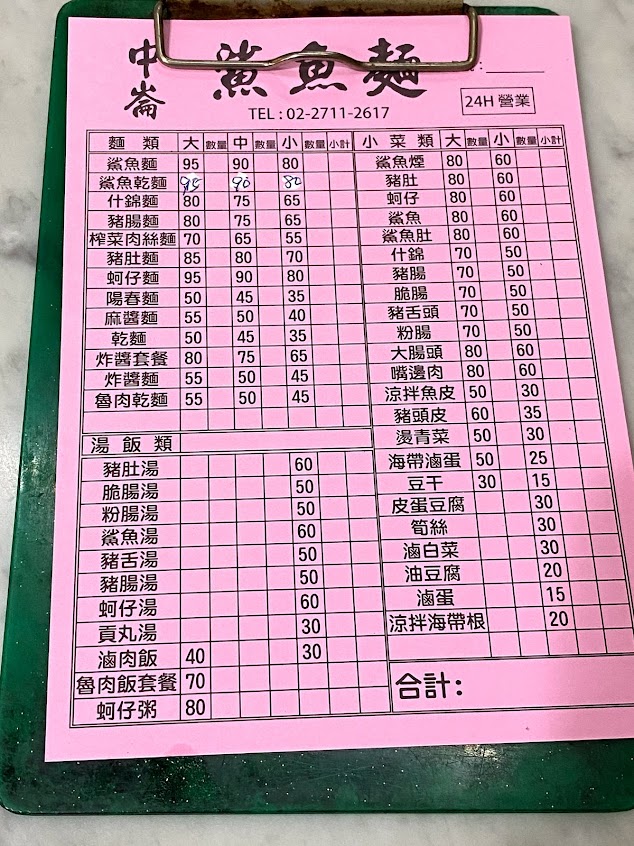 中崙 鯊魚麵
TEL : 02-2711-2617
24H 營業
麵類 大 數量 中 數量 小 數量 小計
鯊魚麵 95 90 80
鯊魚乾麵 95 90 80
什錦麵 80 75 65
豬腸麵 80 75 65
榨菜肉絲麵 70 65 55
豬肚麵 85 80 70
蚵仔麵 95 90 80
陽春麵 50 45 35
麻醬麵 55 50 40
乾麵 50 45 35
炸醬套餐 80 75 65
炸醬麵 55 50 45
魯肉乾麵 55 50 45
湯飯類
豬肚湯 60
脆腸湯 50
粉腸湯 50
鯊魚湯 60
豬舌湯 50
豬腸湯 50
蚵仔湯 60
貢丸湯 30
滷肉飯 40 30
魯肉飯套餐 70
蚵仔粥 80
小菜類 大 數量 小 數量 小計
鯊魚煙 80 60
豬肚 80 60
蚵仔 80 60
鯊魚 80 60
鯊魚肚 80 60
什錦 70 50
豬腸 70 50
脆腸 70 50
豬舌頭 70 50
粉腸 70 50
大腸頭 80 60
嘴邊肉 80 60
涼拌魚皮 50 30
豬頭皮 60 35
燙青菜 50 30
海帶滷蛋 50 25
豆干 30 15
皮蛋豆腐 30
筍絲 30
滷白菜 30
油豆腐 20
滷蛋 15
涼拌海帶根 20
合計: